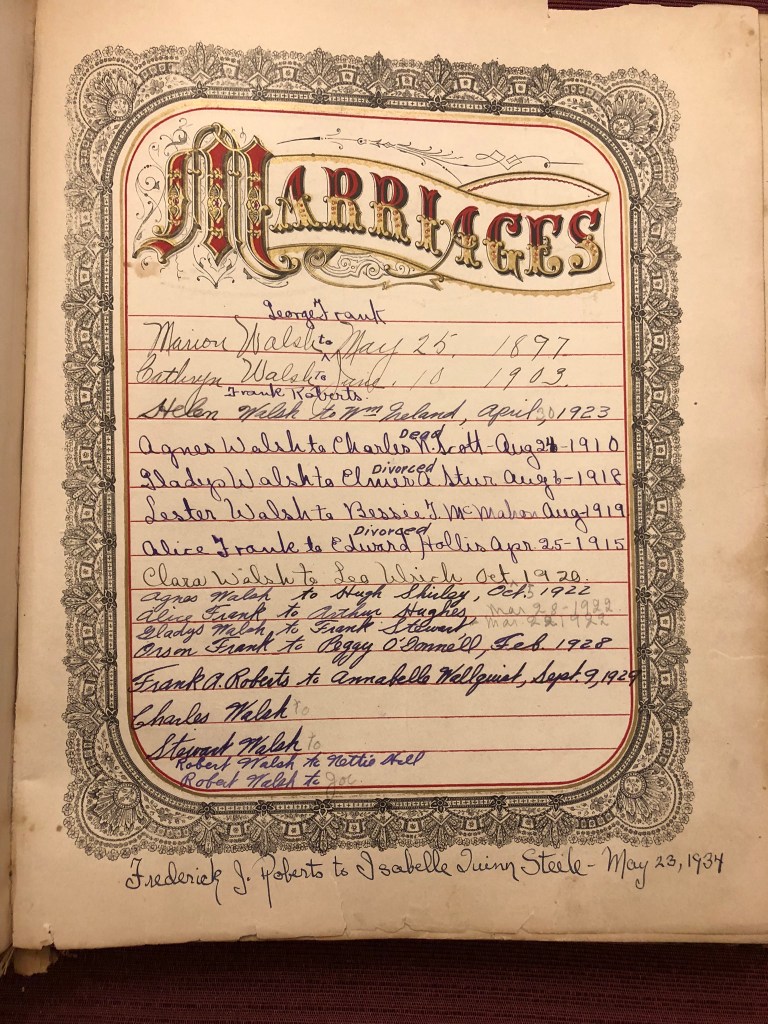 MARRIAGES
George Frank
Marion Walsh to May 25. 1897
Cathryn Walsh to June. 10 1903.
Frank Roberts.
Helen Walsh to Wm Ireland, April, 30, 1923
Dead
Agnes Walsh to Charles R. Scott - Aug 24 - 1910
Divorced
Gladys Walsh to Elmer A Stur Aug 6 - 1918
Lester Walsh to Bessie T. McMahon Aug - 1919
Divorced
Alice Frank to Edward Hollis Apr. 25 - 1915
Clara Walsh to Leo Ulrich Oct. 1920.
Agnes Walsh to Hugh Shirley, Oct. 5 1922
Alice Frank to Arthur Hughes Mar 28 - 1922.
Gladys Walsh to Frank Stewart Mar. 22, 1922
Orson Frank to Peggy O'Donnell, Feb. 1928
Frank A. Roberts to Annabelle Wallquist, Sept. 9, 1929
Charles Walsh to
Stewart Walsh to
Robert Walsh to Nettie Hill
Robert Walsh to
Frederick J. Roberts to Isabelle Quinn Steele - May 23, 1934